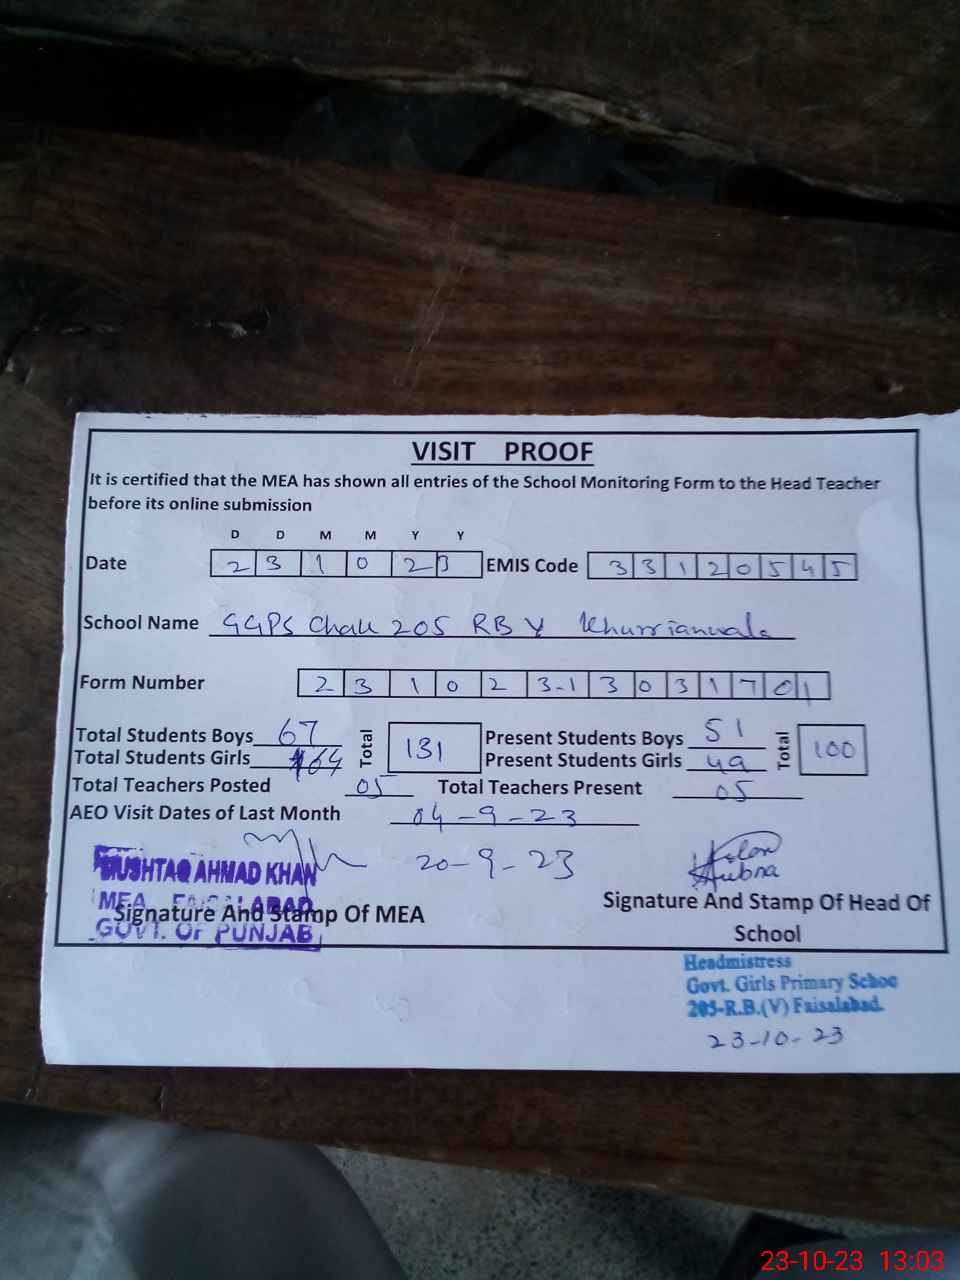 VISIT PROOF
It is certified that the MEA has shown all entries of the School Monitoring Form to the Head Teacher
before its online submission
D D M M Y Y
Date 2 3 1 0 2 3 EMIS Code 3 3 1 2 0 5 4 5
School Name GGPS Chak 205 RB V Khurrianwala
Form Number 2 3 1 0 2 3-1 3 0 3 1 7 0 1
Total Students Boys 67 Total 131 Present Students Boys 51 Total 100
Total Students Girls 64 Present Students Girls 49
Total Teachers Posted 05 Total Teachers Present 05
AEO Visit Dates of Last Month 04-9-23
20-9-23
MUSHTAQ AHMAD KHAN
MEA FAISALABAD
GOVT. OF PUNJAB
Signature And Stamp Of MEA
Signature And Stamp Of Head Of
School
Headmistress
Govt. Girls Primary Schoo
205-R.B.(V) Faisalabad.
23-10-23
23-10-23 13:03